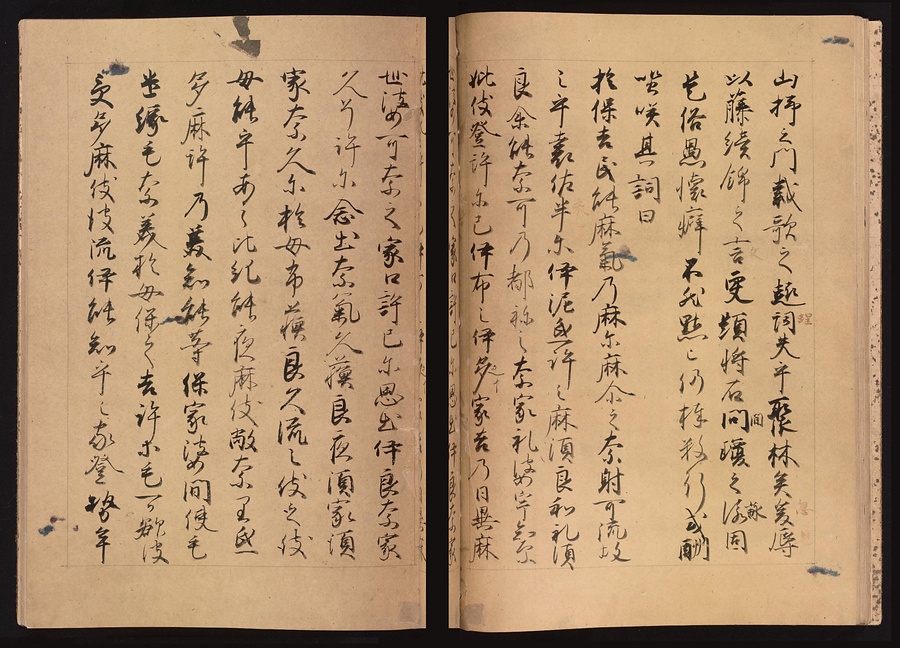 山柿之門裁歌之趣詞失乎聚林矣爰辱
以藤續錦之言更題将石間瓊之詠固
是俗愚懐癖不能黙已仍捧数行式酬
嗤咲其詞曰
於保吉民能麻氣乃麻尓麻尓之奈射可流故
之乎袁佐米尓伊泥氐許之麻須良和礼須
良余能奈可乃都祢之奈家礼婆宇知奈
妣伎登許尓己伊布之伊多家苦乃日異麻
世婆可奈之家口許己尓思出伊良奈家
久曽許尓念出奈氣久蘇良夜須家須
家奈久尓於母布蘇良久流之伎之伎
母能乎安之比紀能夜麻伎敝奈里氐
多麻許乃美知能等保家婆間使毛
遣縁毛奈美於母保之吉許等毛可欲波
受多麻伎波流伊能知乎之家登勢牟